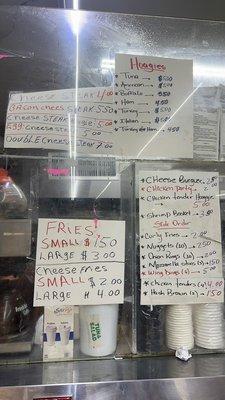 Hoagies
* Tuna $500
* American $500
* Buffalo 550
* Ham 450
* Turkey $500
* Italian $500
* Turkey Ham 450
CHEESE STEAK
BaCoN chees STEAK 550
cHeese STEAK
5.00
Egg cheese STEAK
5.00
DOUBLE cHeese STeaK
FRIES
SMALL $ 150
LARGE $ 3.00
CHeese FRies
SMALL $ 2.00
LARGE $ 4.00
* CHeese Burger
* CHicken Patty
* CHicken tender Hoagie
5.00
* Shrimp Basket
Side Order
* Curly Fries 2.00
* Nuggets (10) 250
* Onion Rings (10) 2.00
* Mozzarella Sticks
* Wing Dings (6) 5.00
* Chicken tenders (4) 4.00
* Hash Brown (2) 150
TUNA
SALAD